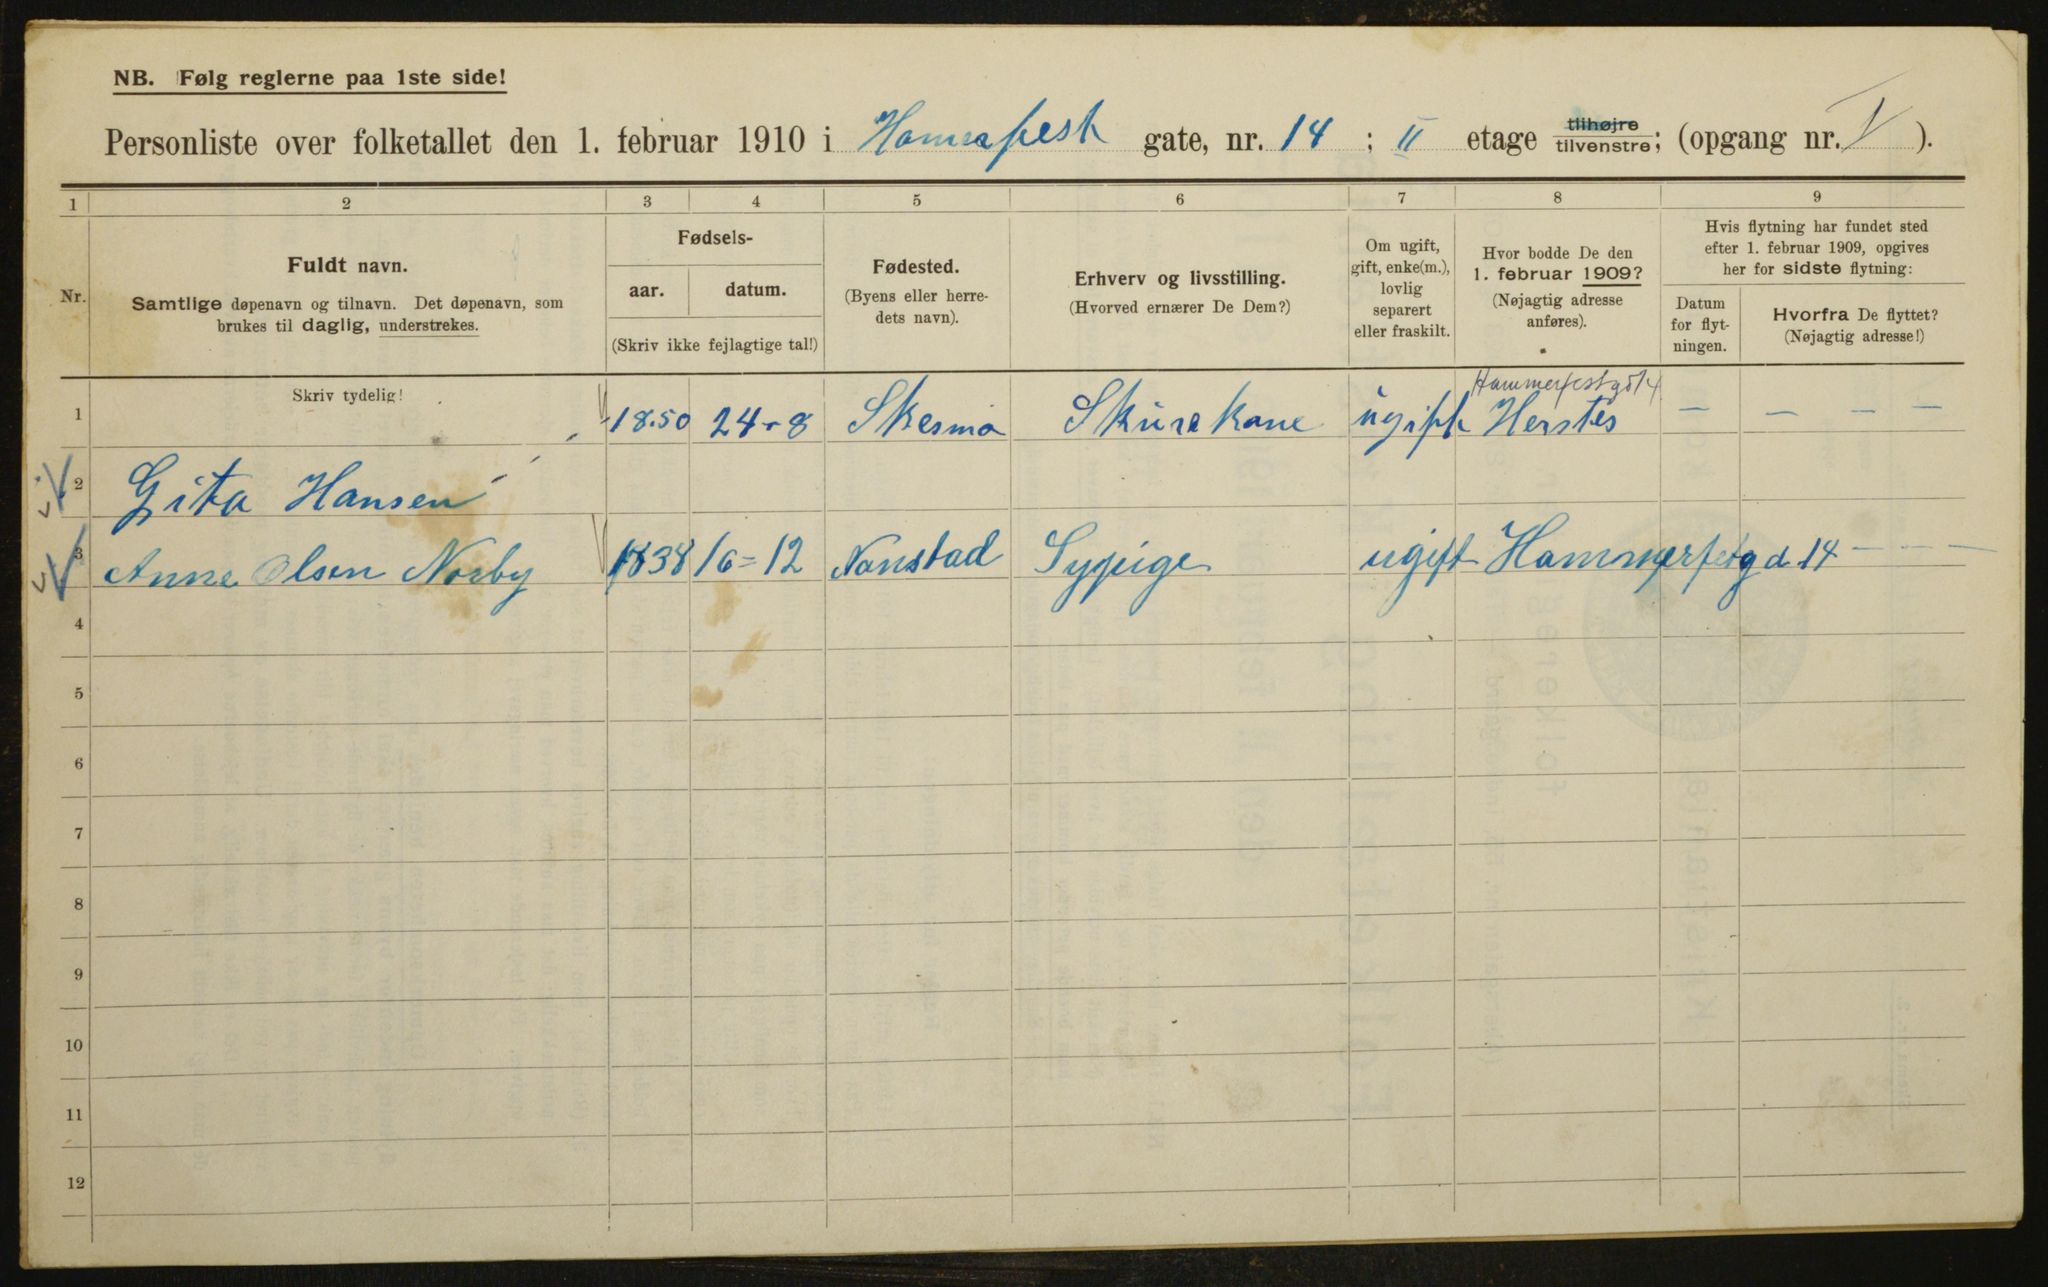 NB. Følg reglerne paa 1ste side!
Personliste over folketallet den 1. februar 1910 i Hamerfest gate, nr. 14 ; II etage tilhøjre tilvenstre; (opgang nr. I ).
1 2 3 4 5 6 7 8 9
Nr.
Fuldt navn.
Samtlige døpenavn og tilnavn. Det døpenavn, som
brukes til daglig, understrekes.
Fødsels-
aar. datum.
(Skriv ikke fejlagtige tal!)
Fødested.
(Byens eller herre-
dets navn).
Erhverv og livsstilling.
(Hvorved ernærer De Dem?)
Om ugift,
gift, enke(m.),
lovlig
separert
eller fraskilt.
Hvor bodde De den
1. februar 1909?
(Nøjagtig adresse
anføres).
Hvis flytning har fundet sted
efter 1. februar 1909, opgives
her for sidste flytning:
Datum
for flyt-
ningen.
Hvorfra De flyttet?
(Nøjagtig adresse!)
Skriv tydelig!
Hammerfestgd 14
1 18.50 24-8 Skesmo Skurekone ugift Herstes — — — —
2 Gita Hansen
3 Anne Olsen Norby 1838 16=12 Nanstad Sypige ugift Hammerfetgd. 14 — — —
4
5
6
7
8
9
10
11
12